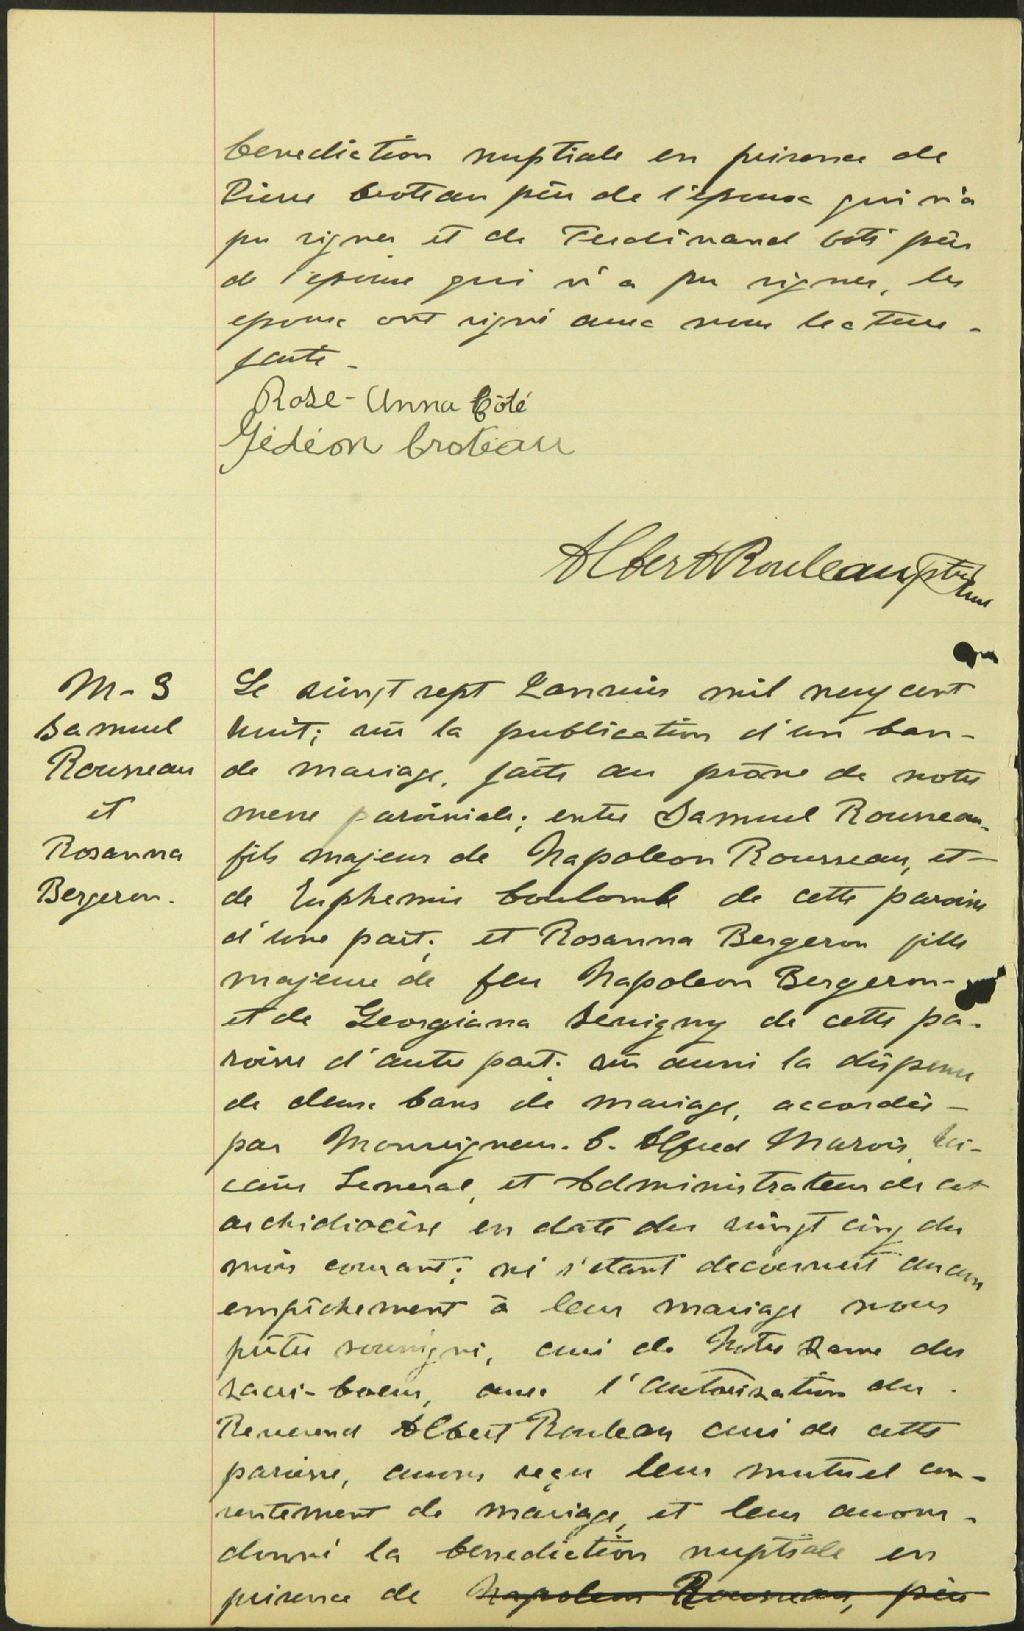 benediction nuptiale en présence de
Pierre Croteau père de l'époux qui n'a
pu signer et de Ferdinand Coté père
de l'épouse qui n'a pu signer, les
epoux ont signé avec nous lecture
faite.
Rose-Anna Côté
Gédéon Croteau
Albert Rouleau ptre
curé
M-3
Samuel
Rousseau
et
Rosanna
Bergeron.
Le vingt sept Janvier mil neuf cent
huit; vu la publication d'un ban
de mariage, faite au prône de notre
messe paroissiale; entre Samuel Rousseau
fils majeur de Napoleon Rousseau, et
de Euphemie Coulombe de cette paroisse
d'une part; et Rosanna Bergeron fille
majeure de feu Napoleon Bergeron
et de Georgiana Sevigny de cette pa-
roisse d'autre part; vu aussi la dispense
de deux bans de mariage, accordée
par Monseigneur C. Alfred Marois, Vi-
caire General, et Administrateur de cet
archidiocèse en date du vingt cinq du
mois courant; ne s'etant decouvert aucun
empêchement à leur mariage nous
prêtre soussigné, curé de Notre Dame du
Sacré-Coeur, avec l'autorisation du
Reverend Albert Rouleau curé de cette
paroisse, avons reçu leur mutuel con-
sentement de mariage, et leur avons
donné la benediction nuptiale en
présence de Napoleon Rousseau, père